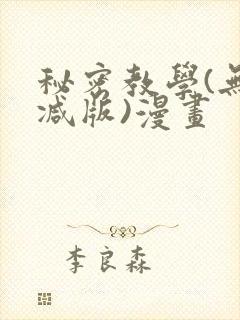 秘密教學(無
減版)漫畫
李良森